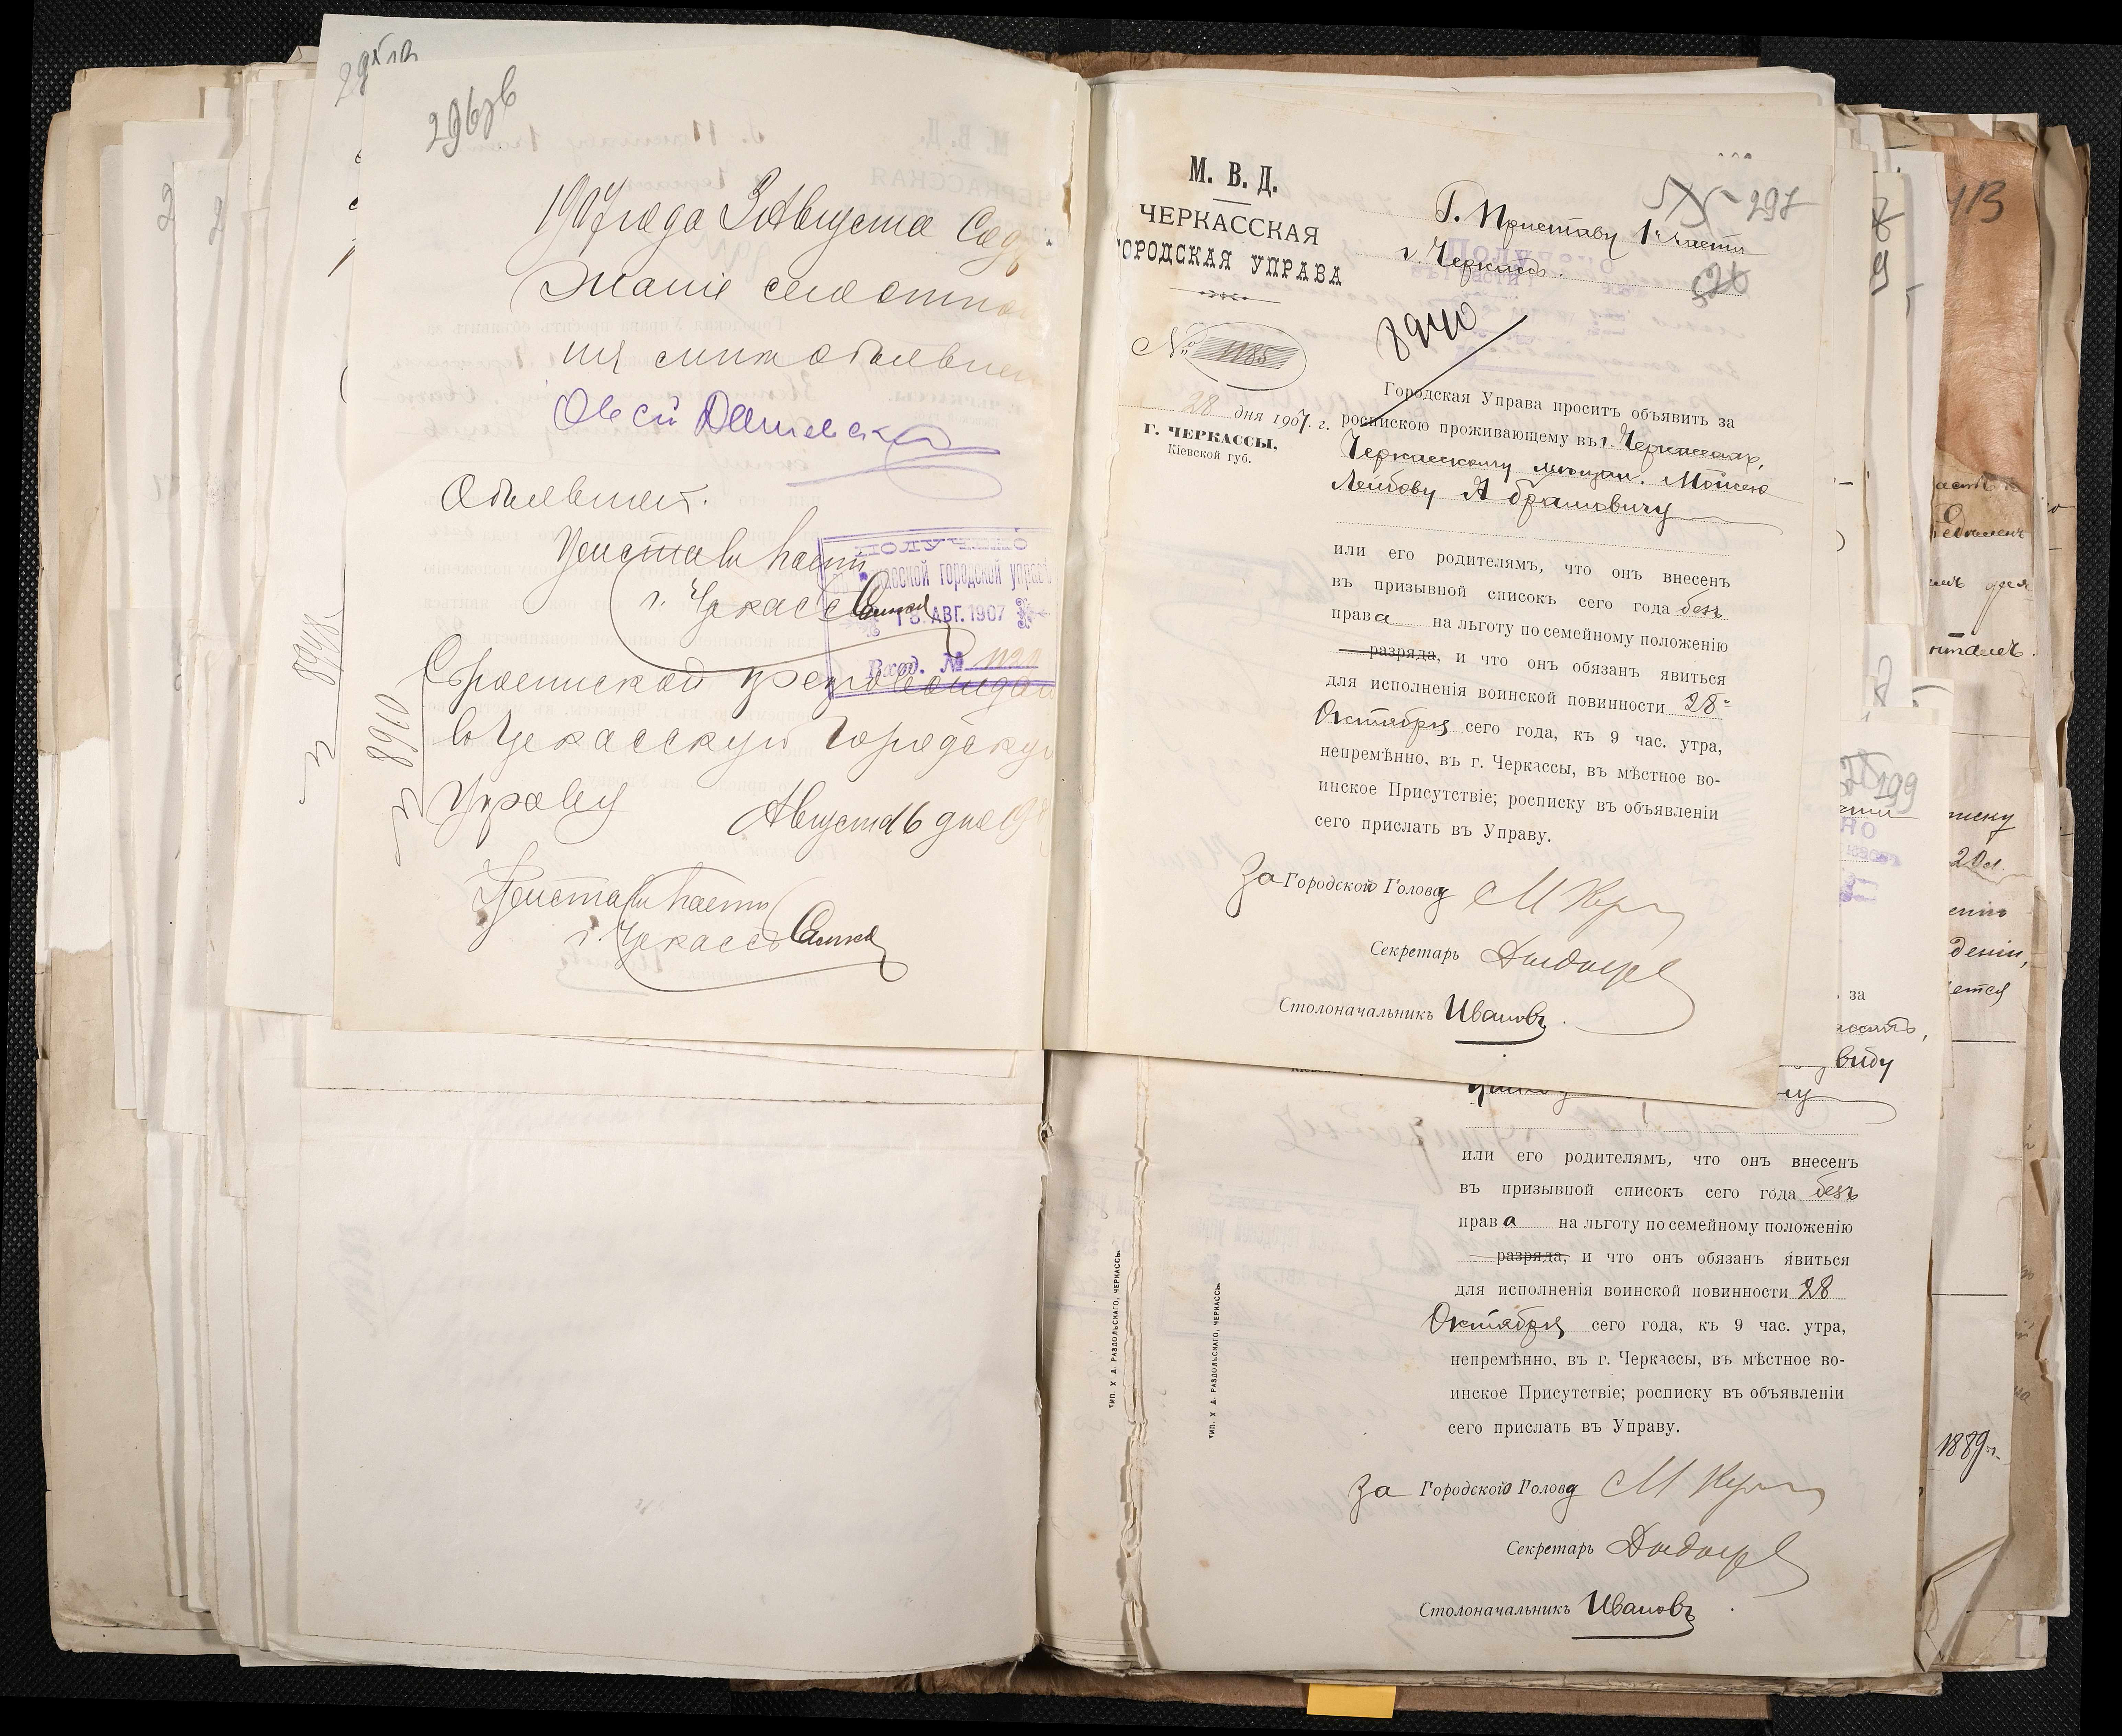 296 об
1907 года 3 Августа Содер
жаніе сего отно
нія мнѣ объявлен
Овсій
Объявилъ.
Приставъ 1 части
г. Черкассъ
ПОЛУЧЕНО
городской управ
АВГ. 1907
Вход. №
Съ роспиской препровождаю
въ Черкасскую Городскую
Управу
Августа 6 дня 190
Приставъ 1 части
г. Черкассъ
8910
8948
М. В. Д.
ЧЕРКАССКАЯ
ГОРОДСКАЯ УПРАВА
№ 1185
28 дня 1907. г.
Г. ЧЕРКАССЫ,
Кіевской губ.
297
Г. Приставу 1й части
г. Черкассъ.
520
8910
Городская Управа проситъ объявить за
роспискою проживающему въ г. Черкассахъ,
Черкасскому мѣщан. Мойсею
Лейбову Абрамовичу
или его родителямъ, что онъ внесенъ
въ призывной списокъ сего года безъ
права на льготу по семейному положенію
разряда, и что онъ обязанъ явиться
для исполненія воинской повинности 28
Октября сего года, къ 9 час. утра,
непремѣнно, въ г. Черкассы, въ мѣстное во-
инское Присутствіе; росписку въ объявленіи
сего прислать въ Управу.
За Городского Голову
Секретарь
Столоначальникъ Ивановъ.
за
виду
или его родителямъ, что онъ внесенъ
въ призывной списокъ сего года безъ
права на льготу по семейному положенію
разряда, и что онъ обязанъ явиться
для исполненія воинской повинности 28
Октября сего года, къ 9 час. утра,
непремѣнно, въ г. Черкассы, въ мѣстное во-
инское Присутствіе; росписку въ объявленіи
сего прислать въ Управу.
За Городского Голову
Секретарь
Столоначальникъ Ивановъ
ТИП. Х. Д. РАЗДОЛЬСКАГО, ЧЕРКАССЫ.
ТИП. Х. Д. РАЗДОЛЬСКАГО, ЧЕРКАССЫ.
413
199
1889 г.